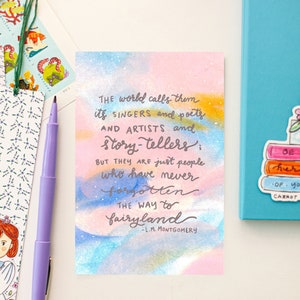 THE WORLD CALLS THEM
ITS SINGERS AND POETS
AND ARTISTS AND
STORY-TELLERS;
BUT THEY ARE JUST PEOPLE
WHO HAVE NEVER
FORGOTTEN
THE WAY TO
FAIRYLAND
-L.M. MONTGOMERY
BE
OF YO
CARROT